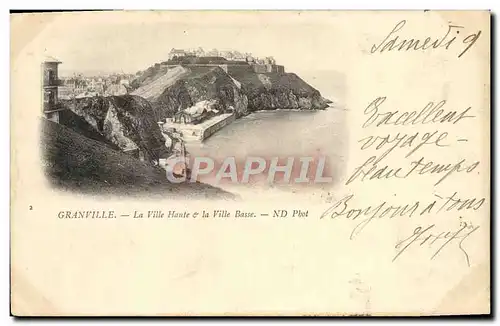 Samedi 9
Excellent
voyage –
beau temps –
Bonjour à tous
CAPHIL
2
GRANVILLE. — La Ville Haute & la Ville Basse. — ND Phot